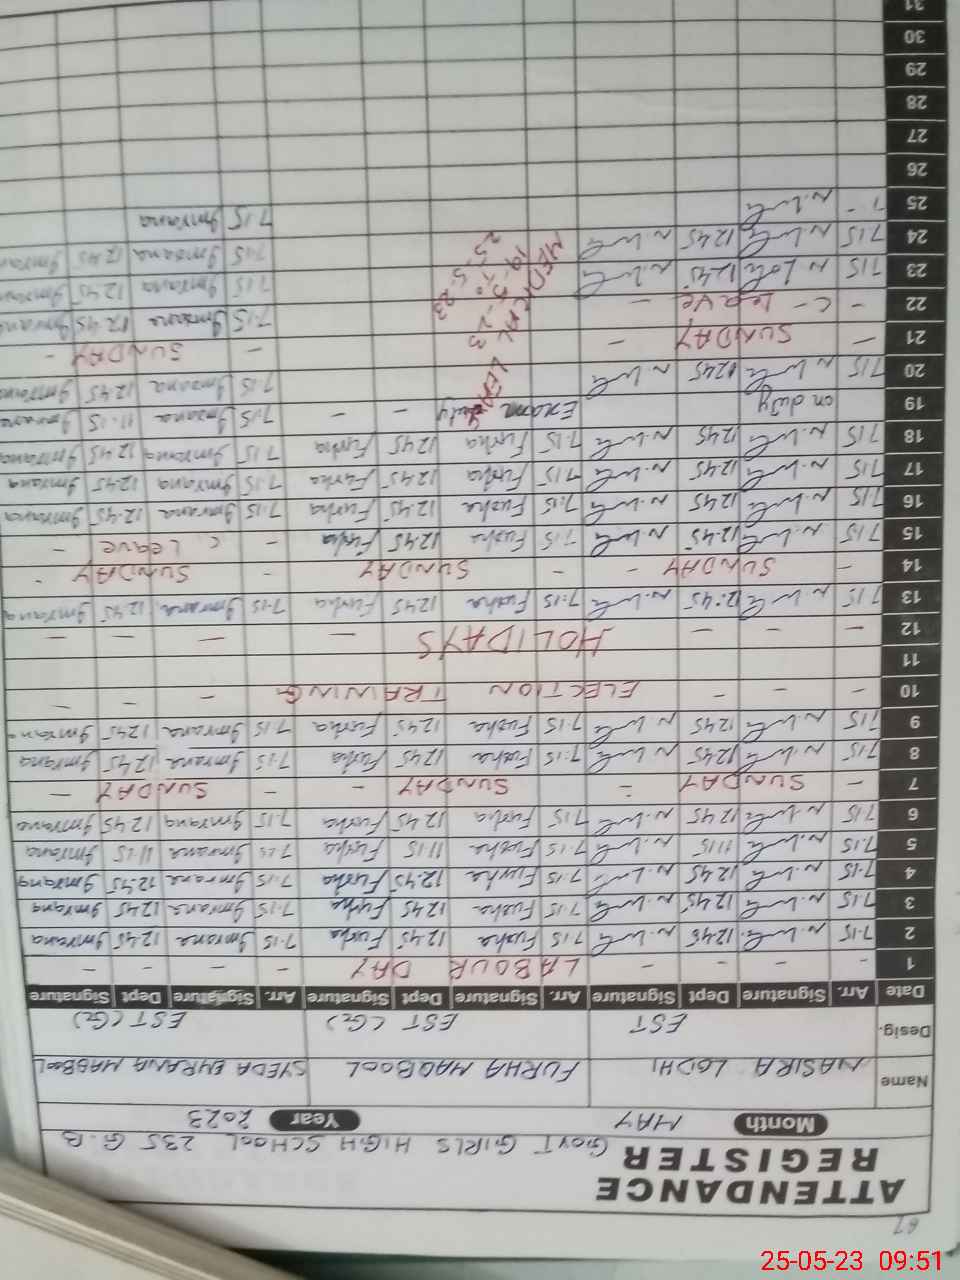 67
ATTENDANCE REGISTER
GOVT GIRLS HIGH SCHOOL 235 G.B
Month MAY Year 2023
Name NASIRA LODHI FURHA MAQBOOL SYEDA EMRANA MAQBOOL
Desig. EST EST (G2) EST (G2)
Date Arr. Signature Dept Signature Arr. Signature Dept Signature Arr. Signature Dept Signature
1 - - - - LABOUR DAY - - - -
2 7.15 12.45 7.15 Furha 12.45 Furha 7.15 Imrana 12.45 Imrana
3 7.15 12.45 7.15 Furha 12.45 Furha 7.15 Imrana 12.45 Imrana
4 7.15 12.45 7.15 Furha 12.45 Furha 7.15 Imrana 12.45 Imrana
5 7.15 11.15 7.15 Furha 11.15 Furha 7.15 Imrana 11.15 Imrana
6 7.15 12.45 7.15 Furha 12.45 Furha 7.15 Imrana 12.45 Imrana
7 - SUNDAY - SUNDAY - - SUNDAY -
8 7.15 12.45 7.15 Furha 12.45 Furha 7.15 Imrana 12.45 Imrana
9 7.15 12.45 7.15 Furha 12.45 Furha 7.15 Imrana 12.45 Imrana
10 - - - ELECTION TRAINING - -
11
12 - - - HOLIDAYS - - - -
13 7.15 12.45 7.15 Furha 12.45 Furha 7.15 Imrana 12.45 Imrana
14 - SUNDAY - - SUNDAY - SUNDAY -
15 7.15 12.45 7.15 Furha 12.45 Furha - C. Leave -
16 7.15 12.45 7.15 Furha 12.45 Furha 7.15 Imrana 12.45 Imrana
17 7.15 12.45 7.15 Furha 12.45 Furha 7.15 Imrana 12.45 Imrana
18 7.15 12.45 7.15 Furha 12.45 Furha 7.15 Imrana 12.45 Imrana
19 on duty Exam duty - - 7.15 Imrana 11.15 Imrana
20 7.15 12.45 7.15 Imrana 12.45 Imrana
21 - SUNDAY - - SUNDAY -
22 - C - Leave - 7.15 Imrana 12.45 Imrana
23 7.15 12.45 7.15 Imrana 12.45 Imrana
24 7.15 12.45 7.15 Imrana 12.45 Imrana
25 7.15 Imrana
MEDICAL LEAVE
19-5-23
to
25-5-23
26
27
28
29
30
31
25-05-23 09:51